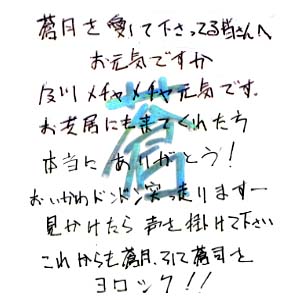 蒼月を愛して下さってる皆さんへ
お元気ですか
及川メチャメチャ元気です。
お芝居にも来てくれたら
本当にありがとう!
おいかわドンドン突っ走りますー
見かけたら声を掛けて下さい
これからも蒼月、そして蒼司を
ヨロシク!!
蒼